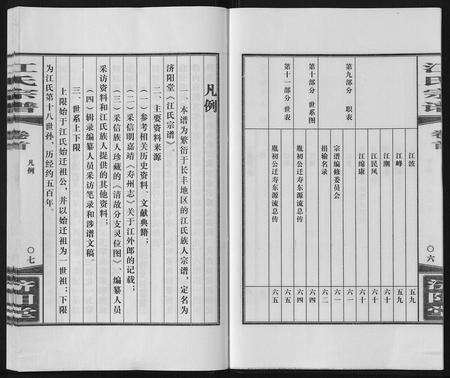 江氏宗谱
卷首
〇六
济阳堂
江波 五九
江峰 五九
江潮 六十
江民风 六十
江绵康 六十
第九部分 职表
宗谱编修委员会 六一
捐输名录 六二
第十部分 世系图
胤初公迁寿东源流总传 六四
第十一部分 世表
胤初公迁寿东源流总传 六五
凡例
一、本谱为繁衍于长丰地区的江氏族人宗谱，定名为
济阳堂《江氏宗谱》。
二、主要资料来源
（一）参考相关历史资料、文献典籍；
（二）采信明嘉靖《寿州志》关于江外郎的记载；
（三）采信族人珍藏的《清故分支灵位图》、编纂人员
采访资料和江氏族人提供的其他资料；
（四）辑录编纂人员采访笔录和涉谱文稿。
三、世系上下限
上限始于江氏始迁祖公，并以始迁祖为一世祖；下限
为江氏第十八世孙，历经约五百年。
江氏宗谱
卷首
凡例
〇七
济阳堂